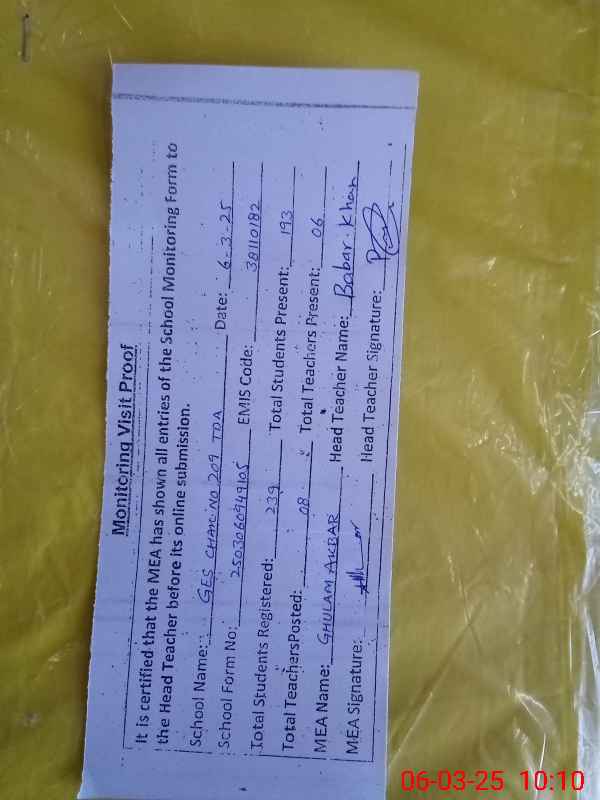 Monitoring Visit Proof
It is certified that the MEA has shown all entries of the School Monitoring Form to
the Head Teacher before its online submission.
School Name: GES CHAK NO 209 TDA Date: 6-3-25
School Form No: 2503060949105 EMIS Code: 38110182
Total Students Registered: 239 Total Students Present: 193
Total TeachersPosted: 08 Total Teachers Present: 06
MEA Name: GHULAM AKBAR Head Teacher Name: Babar Khan
MEA Signature: Head Teacher Signature:
06-03-25 10:10